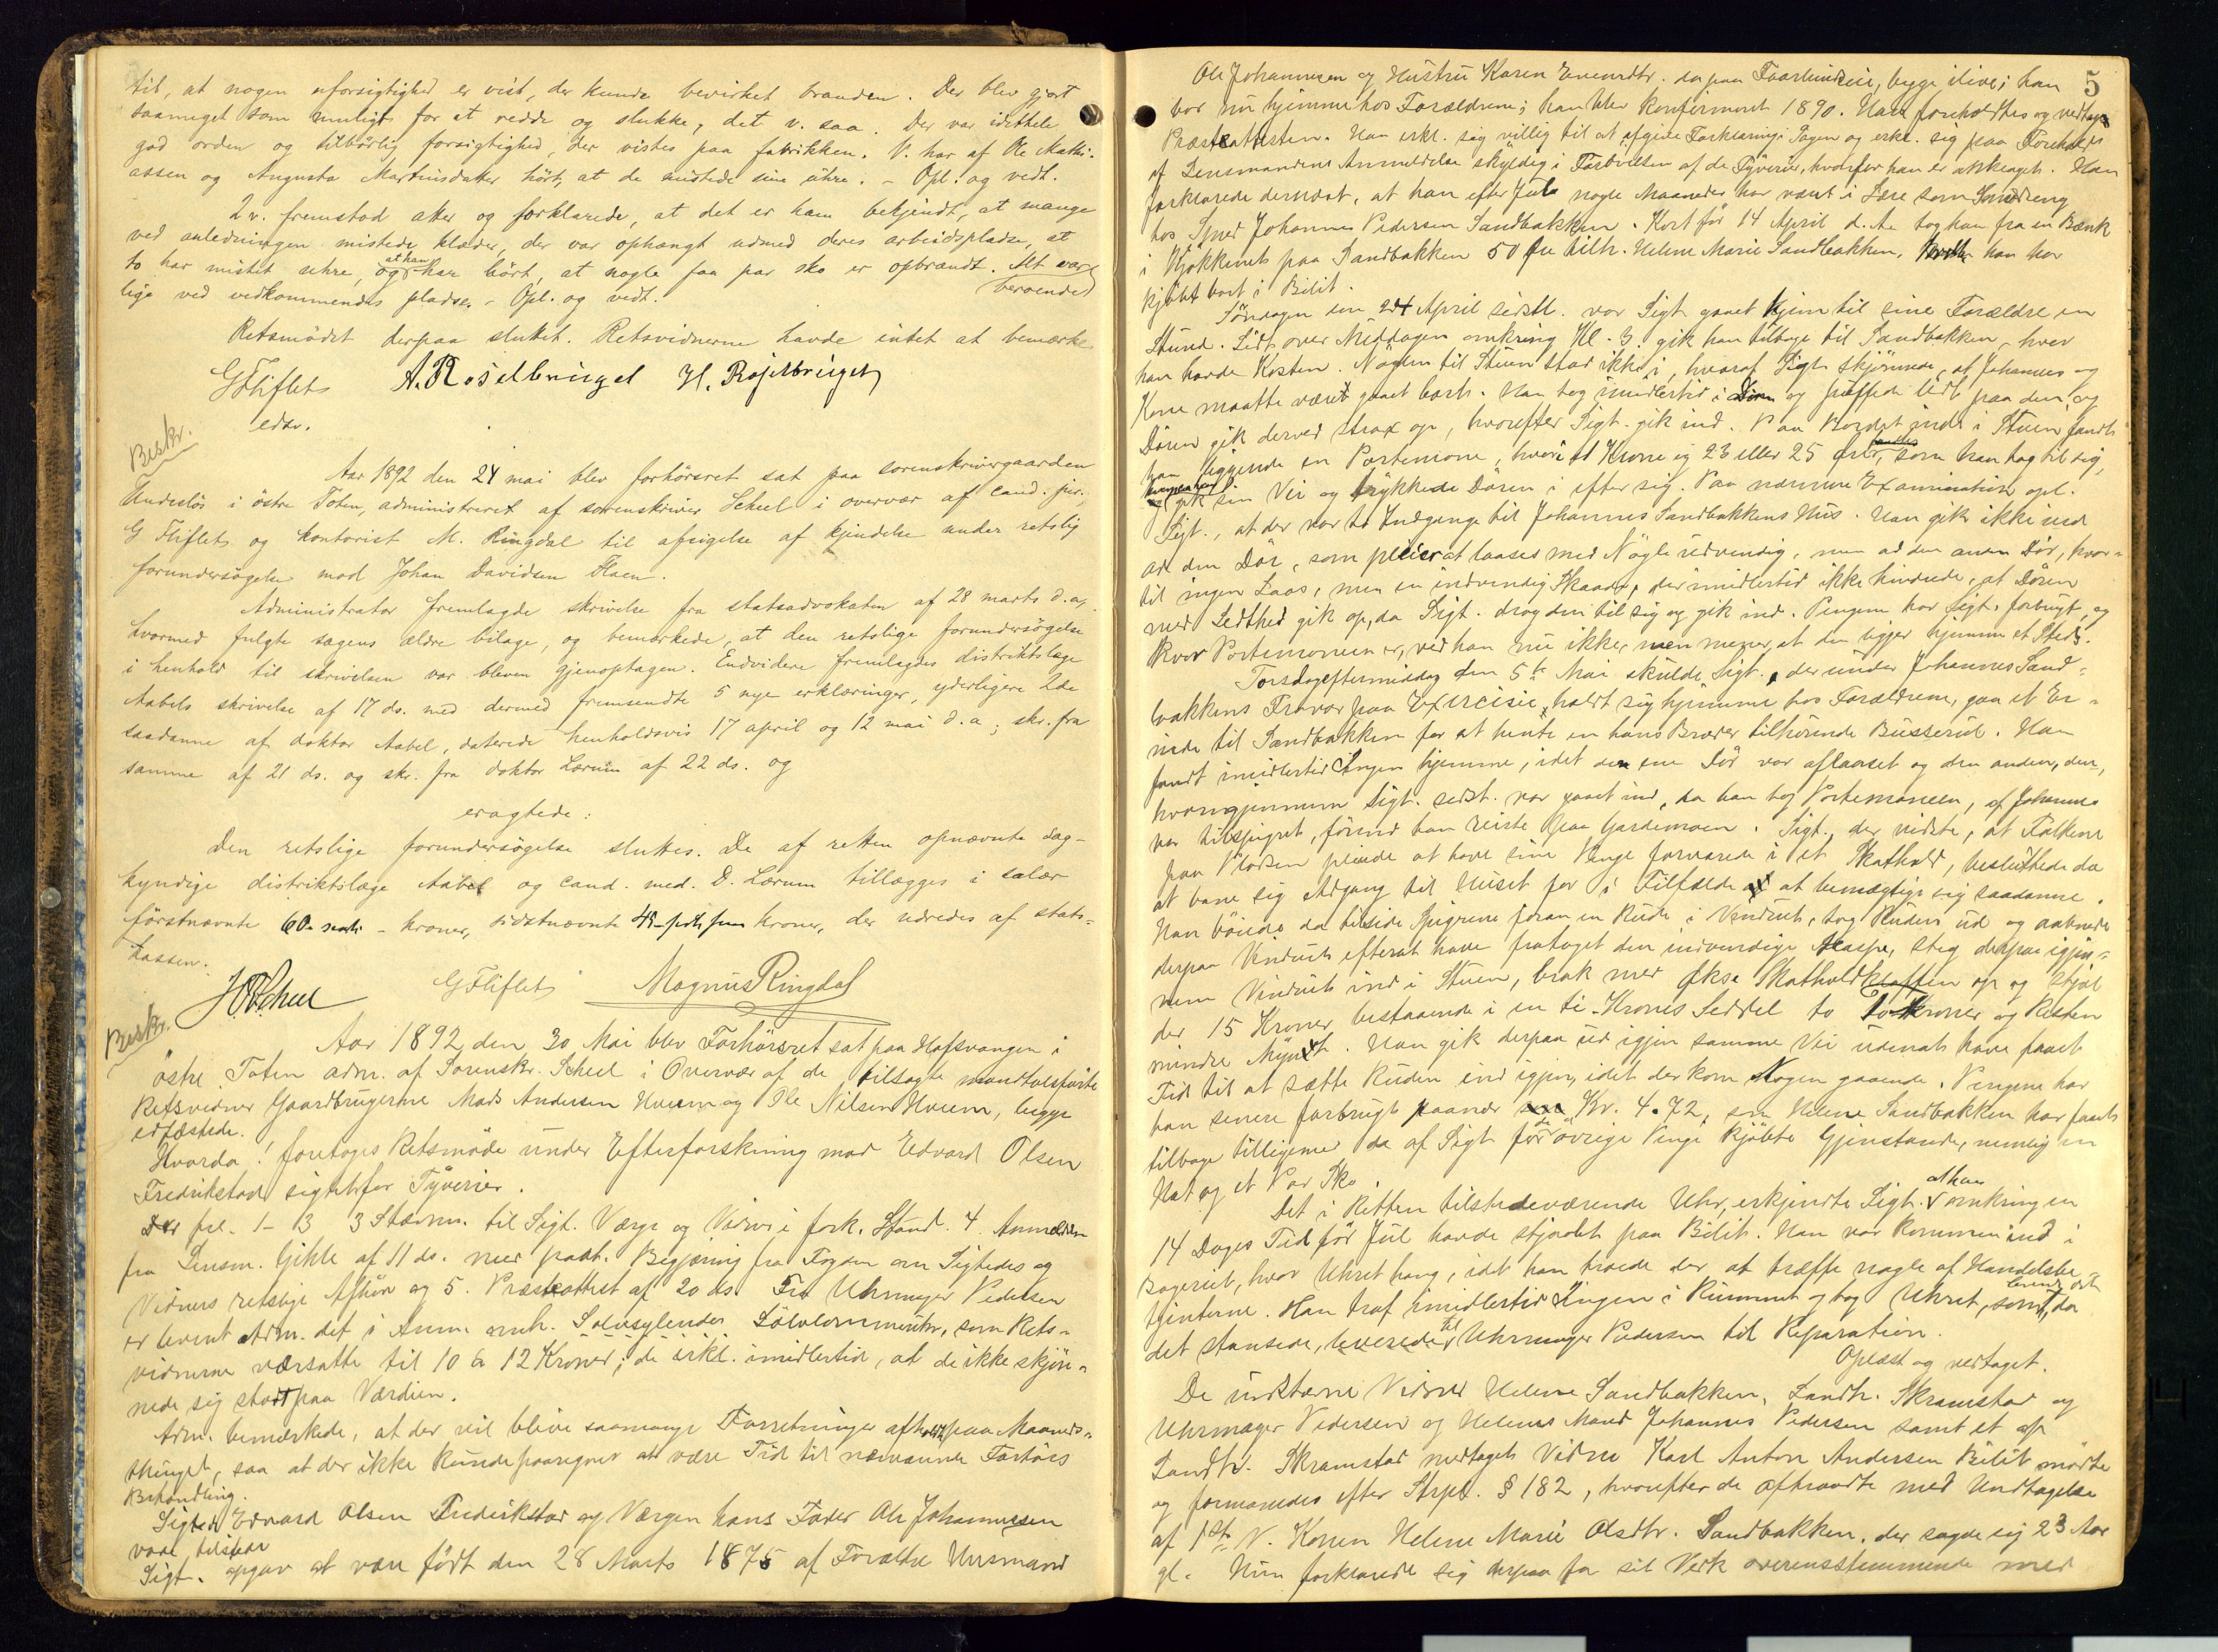 til, at nogen uforsigtighed er vist, der kunde bevirket branden. Der blev gjort
saameget som muligt for at redde og slukke, det v. saa. Der var idethele
god orden og tilbørlig forsigtighed, der vistes paa fabrikken. V. har af Ole Mathi-
assen og Augusta Martinsdatter hørt, at de mistede sine uhre. - Opl. og vedt.
2 v. fremstod atter og forklarede, at det er ham bekjendt, at mange
ved anledningen mistede klæder, der var ophængt udmed deres arbeidsplads, at
to har mistet uhre, og at han har hørt, at nogle faa par sko er opbrændt. Alt var beroende
lige ved vedkommendes pladse. - Opl. og vedt.
Retsmødet derpaa sluttet. Retsvidnerne havde intet at bemærke
G Fliflet A. Röiselbrüget H. Röiselbrüget
edsv.
Beskr.
Aar 1892 den 24 mai blev forhørsret sat paa sorenskrivergaarden
Underlös i östre Toten, administreret af sorenskriver Scheel i overvær af cand. jur.
G Fliflet og kontorist M. Ringdal til afsigelse af kjendelse under retslig
forundersøgelse mod Johan Davidsen Flaen.
Administrator fremlagde skrivelse fra statsadvokaten af 28 marts d.a,
hvormed fulgte sagens ældre bilage, og bemærkede, at den retslige forundersøgelse
i henhold til skrivelsen var bleven gjenoptagen. Endvidere fremlagdes distriktslæge
Aabels skrivelse af 17 ds. med dermed fremsendte 5 nye erklæringer, yderligere 2de
saadanne af doktor Aabel, daterede henholdsvis 17 april og 12 mai d.a; skr. fra
samme af 21 ds. og skr. fra doktor Lærum af 22 ds. og
eragtede:
Den retslige forundersøgelse sluttes. De af retten opnævnte sag-
kyndige distriktslæge Aabel og cand. med. D. Lærum tillægges i salær
førstnævnte 60 - seksti - kroner, sidstnævnte 45 - firti fem kroner, der udredes af stats-
kassen.
Scheel G Fliflet Magnus Ringdal
Beskr.
Aar 1892 den 30 Mai blev Forhörsret sat paa Hofsvangen i
östre Toten adm. af Sorenskr. Scheel i Overvær af de tilsagte mandtalsførte
Retsvidner Gaardbrugerne Mads Andersen Hveem og Ole Nilsen Hveem, begge
edfæstede.
Hvorda! foretoges Retsmöde under Efterforskning mod Edvard Olsen
Fredrikstad sigtet for Tyverier.
Der frl. 1-3 3 Stævn. til Sigt. Værge og Vidner i fork. Stand. 4. Anmeldelse
fra Lensm. Gihle af 11 ds. med paat. Begjæring fra Fogden om Sigtedes og
Vidners retslige Afhør og 5. Præsteattest af 20 ds. Fra Uhrmager Pedersen
er levert Adm. det i Anm. omh. Sølvcylender Sølvlommeuhr, som Rets-
vidnerne værsatte til 10 a 12 Kroner; de erkl. imidlertid, at de ikke skjøn-
nede sig stort paa Værdien.
Adm. bemærkede, at der vil blive saamange Forretninger afholdt paa Maaneds-
thinget, saa at der ikke kunde paaregnes at være Tid til nærværende Forhørs
Behandling.
Sigtede Edvard Olsen Fredrikstad og Værgen hans Fader Ole Johannessen
vare tilstede
Sigt. opgav at være født den 28 Marts 1875 af Forældre Husmand
5
Ole Johannesen og Hustru Karen Evensdtr. da paa Faarlundeie, begge ilive; han
bor nu hjemme hos Forældrene; han blev konfirmeret 1890. Han foreholdtes og vedtog
Præsteattesten. Han erkl. sig villig til at afgive Forklaring i Sagen og erkl. sig paa Forehold
af Lensmandens Anmeldelse skyldig i Forøvelsen af de Tyverier, hvorfor han er anklaget. Han
forklarede dernæst, at han efter Jula nogle Maaneder har været i Lære som Smeddreng
hos Smed Johannes Pedersen Sandbakken. Kort før 14 April d. A. tog han fra en Bænk
i Kjøkkenet paa Sandbakken 50 Øre tilh. Helene Marie Sandbakken, hvilke han har
kjøbt bort i Bilit.
Söndagen den 24 April sidstl. var Sigt. gaaet hjem til sine Forældre en
Stund. Lidt over Middagen omkring Kl. 3 gik han tilbage til Sandbakken, hvor
han havde Kosten. Nøglen til Stuen stod ikke i, hvoraf Sigt. skjønnede, at Johannes og
Kone maatte været gaaet bort. Han tog imidlertid i Dören og træffede lidt paa den, og
Dören gik derved strax op, hvorefter Sigt. gik ind. Paa Bordet inde i Stuen fandt
han liggende en Portemone, hvori 1 Krone og 23 eller 25 Øre fandtes, som han tog til sig,
hvorpaa han gik sin Vei og trykkede Dören i efter sig. Paa nærmere Examination opl.
Sigt., at der var to Indgange til Johannes Sandbakkens Hus. Han gik ikke ind
ad den Dör, som pleier at laases med Nögle udvendig, men ad den anden Dör, hvor-
til ingen Laas, men en indvendig Skaade, der imidlertid ikke hindrede, at Dören
med Lethed gik op, da Sigt. drog den til sig og gik ind. Pengene har Sigt. forbrugt, og
hvor Portemoneen er, ved han nu ikke, men mener, at den ligger hjemme et Sted.
Torsdageftermiddag den 5te Mai skulde Sigt., der under Johannes Sand-
bakkens Fravær paa Exercisie, holdt sig hjemme hos Forældrene, gaa et Er-
inde til Sandbakken for at hente en hans Broder tilhørende Busserul. Han
fandt imidlertid Ingen hjemme, idet den ene Dör var aflaaset og den anden, den,
hvorigjennem Sigt. sidst. var gaaet ind, da han tog Portemoneen, af Johannes
var tilspigret, førend han reiste paa Gardemoen. Sigt., der vidste, at Folkene
paa Pladsen pleiede at have sine Penge forvarede i et Skathold, besluttede da
at bane sig Adgang til Huset for i Tilfælde at bemægtige sig saadanne.
Han böiede da tilside Spigrene foran en Rude i Vinduet, tog Ruden ud og aabnede
derpaa Vinduet efterat have frataget den indvendige Haspe, steg derpaa igjen-
nem Vinduet ind i Stuen, brak med Økse Skatholdklaffen op og stjal
der 15 Kroner bestaaende i en ti-Krones Seddel to Tokroner og Resten
mindre Mynt. Han gik derpaa ud igjen samme Vei udenat have faaet
Tid til at sætte Ruden ind igjen, idet der kom Nogen gaaende. Pengene har
han senere forbrugt paanær Kr. 4.72, som Helene Sandbakken har faaet
tilbage tilligemed de af Sigt. for de øvrige Penge kjøbte Gjenstande, nemlig en
Hat og et Par Sko.
Det i Retten tilstedeværende Uhr, erkjendte Sigt. at han omkring en
14 Dages Tid før Jul havde stjaalet paa Bilit. Han var kommen ind i
Bageriet, hvor Uhret hang, idet han troede der at træffe nogle af Handelsbe-
tjenterne. Han traf imidlertid Ingen i Rummet og tog Uhret, som, da
det stansede, leveredes til Uhrmager Pedersen til Reparation.
Oplæst og vedtaget.
De indstævnte Vidner Helene Sandbakken, Landh. Skramstad og
Uhrmager Pedersen og Helenes Mand Johannes Pedersen samt et af
Landh. Skramstad medtaget Vidne Karl Anton Andersen Bilit mødte
og formanedes efter Strpl. § 182, hvorefter de aftraadte med Undtagelse
af 1ste V. Konen Helene Marie Olsdtr. Sandbakken, der sagde sig 23 Aar
gl. Hun forklarede sig derpaa for sit Vedk. overensstemmende med